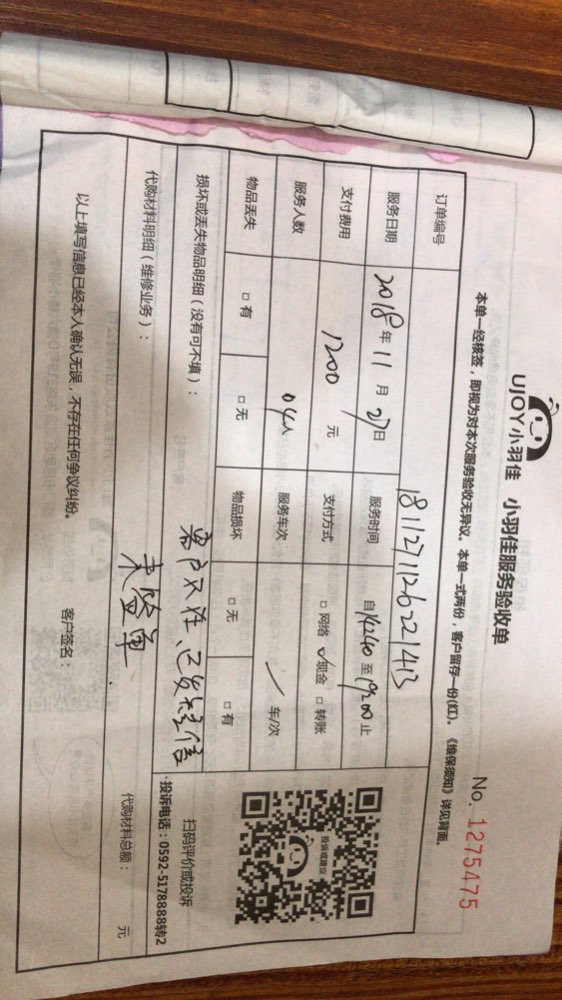 UJOY小羽佳 小羽佳服务验收单
No. 1275475
本单一经核签，即视为对本次服务验收无异议。本单一式两份，客户留存一份(红)。《维保须知》详见背面。
订单编号 18112711260221413
服务日期 2018年 11 月 27日 服务时间 自14:240 至19:00止
支付费用 1200 元 支付方式 □ 网络 ✓现金 □ 转账
服务人数 04人 服务车次 / 车/次
物品丢失 □ 有 □ 无 物品损坏 □ 无 □ 有
损坏或丢失物品明细（没有可不填）： 客户不在、已发短信
未签单
代购材料明细（维修业务）： 代购材料总额： 元
以上填写信息已经本人确认无误，不存在任何争议纠纷。 客户签名：
投诉或建议
扫码评价或投诉
投诉电话：0592-5178888转2